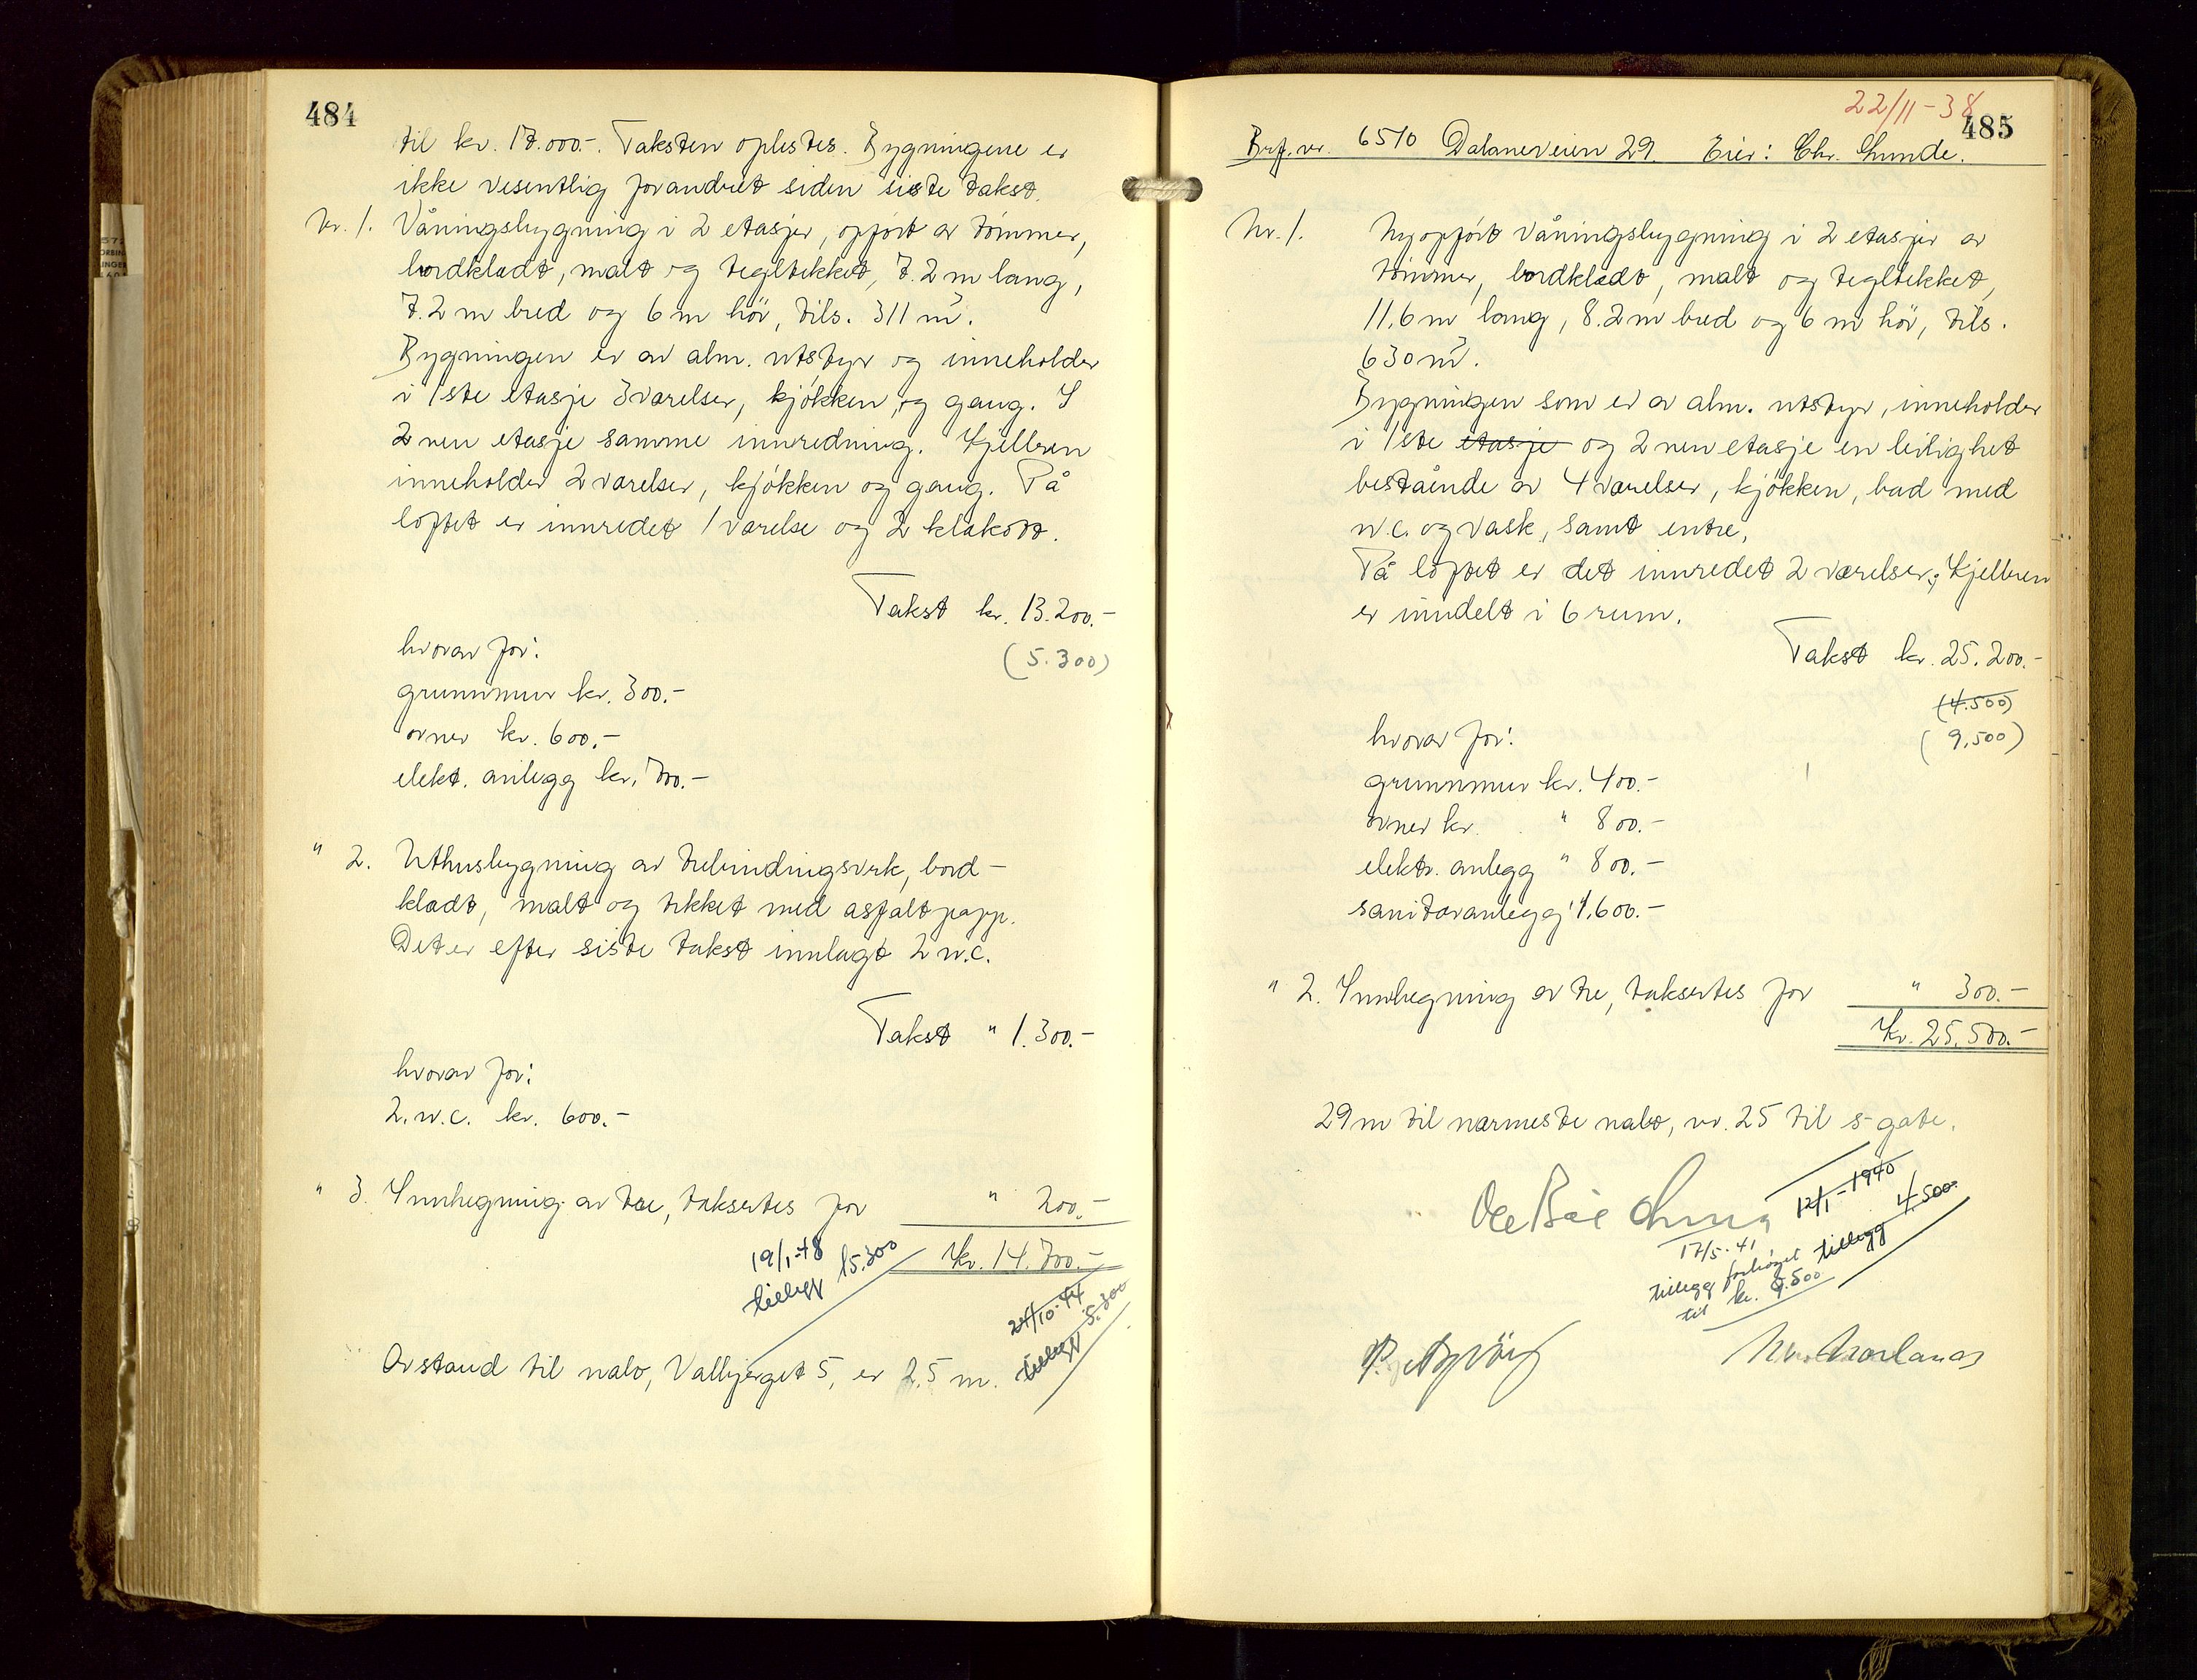 484
til kr. 17.000.-. Taksten oplestes. Bygningene er
ikke vesentlig forandret siden siste takst.
Nr. 1. Våningsbygning i 2 etasjer, opført av tømmer,
bordklædt, malt og tegltekket, 7.2 m lang,
7.2 m bred og 6 m høi, tils. 311 m³.
Bygningen er av alm. utstyr og inneholder
i 1ste etasje 3 værelser, kjøkken og gang. I
2nen etasje samme innredning. Kjelleren
inneholder 2 værelser, kjøkken og gang. På
loftet er innredet 1 værelse og 2 klækott.
Takst kr. 13.200.-
(5.300)
hvorav for:
grunnmur kr. 300.-
ovner kr. 600.-
elekt. anlegg kr. 700.-
" 2. Uthusbygning av trebindingsverk, bord-
klædt, malt og tekket med asfaltpapp.
Det er efter siste takst innlagt 2 w.c.
Takst " 1.300.-
hvorav for:
2. w.c. kr. 600.-
" 3. Innhegning av tre, taksertes for " 200.-
Kr. 14.700.-
19/1-48
tillegg 15.300
24/10.44
tillegg 5.300
Avstand til nabo, Vallbjerget 5, er 2.5 m.
22/11-38
485
Brf. nr. 6510 Dalaneveien 29. Eier: Chr. Lunde.
Nr. 1. Nyopført våningsbygning i 2 etasjer av
tømmer, bordklædt, malt og tegltekket,
11.6 m lang, 8.2 m bred og 6 m høi, tils.
630 m³.
Bygningen som er av alm. utstyr, inneholder
i 1ste etasje og 2nen etasje en leilighet
bestående av 4 værelser, kjøkken, bad med
w.c. og vask, samt entre.
På loftet er det innredet 2 værelser; Kjelleren
er inndelt i 6 rum.
Takst kr. 25.200.-
(4.500)
(9.500)
hvorav for:
grunnmur kr. 400.-
ovner kr. " 800.-
elektr. anlegg " 800.-
sanitæranlegg " 1.600.-
" 2. Innhegning av tre, taksertes for " 300.-
Kr. 25.500.-
29 m til nærmeste nabo, nr. 25 til s. gate.
12/1-1940
tillegg 4.500.-
17/5.41
tillegg forhøiet
til kr. 9.500